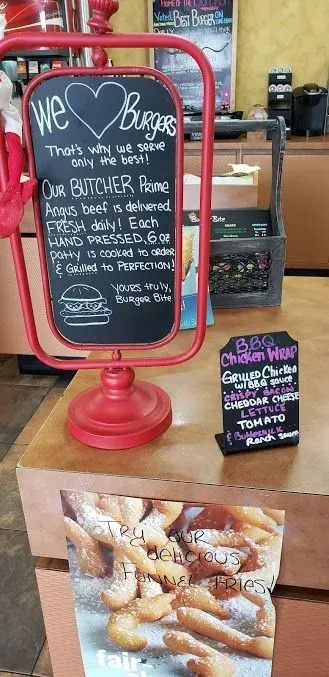 HOME OF THE
Voted
BEST BURGER
ON
We ♡ Burgers
That's why we serve
only the best!
OUR BUTCHER Prime
Angus beef is delivered
FRESH daily! Each
HAND PRESSED, 6 oz
patty is cooked to order
& Grilled to PERFECTION!
Yours truly,
Burger Bite
Bite
B.B.Q
Chicken WRAP
GRILLED Chicken
w/ BBQ sauce
CRISPY BACON
CHEDDAR CHEESE
LETTUCE
TOMATO
& Buttermilk
Ranch sauce
TRY OUR
delicious
FUNNEL FRIES!
fair-